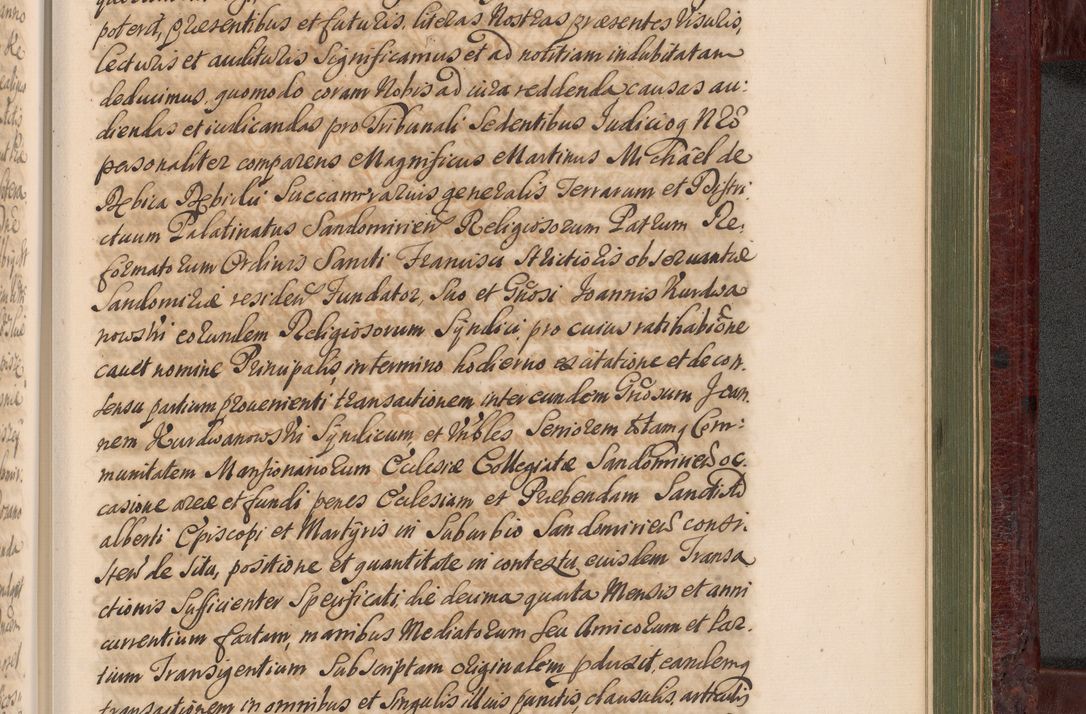 poterit, præsentibus et futuris, literas Nostras præsentes Visuris,
lecturis et audituris Significamus et ad notitiam indubitatam
deducimus, quomodo coram Nobis ad iura reddenda causas au:
diendas et iudicandas pro Tribunali Sedentibus Judicioq Nrõ
personaliter comparens Magnificus Martinus Michael de
Dębica Dębicki Succamerarius generalis Terrarum et Distri,
ctuum Palatinatus Sandomirien Religiosorum Patrum Re,
formatorum Ordinis Sancti Francisci Strictioris observantiæ
Sandomiriæ residen Fundator, Suo et Gñosi Joannis Kurdwa
nowski eorundem Religiosorum Syndici pro cuius ratihabiõne
cavet nomine Principalis, in termino hodierno ex citatione et de con,
sensu partium provenienti transactionem inter eundem Gñosum Joan
nem Kurdwanowski Syndicum, et Vñbles Seniorem totamq Com:
munitatem Mansionariorum Ecclesiæ Collegiatæ Sandomirien oc,
casione areæ et fundi penes Ecclesiam et Præbendam Sancti Ad
alberti Episcopi et Martyris in Suburbio Sandomirien consi,
sten de situ, positione et quantitate in contextu eiusdem Transa
ctionis Sufficienter Specificati, die decima quarta Mensis et anni
currentium factam, manibus Mediatorum seu Amicorum et Par,
tium Transigentium Subscriptam originalem pduxit, eandemq
transactionem in omnibus et singulis illius punctis, clausulis, articulis